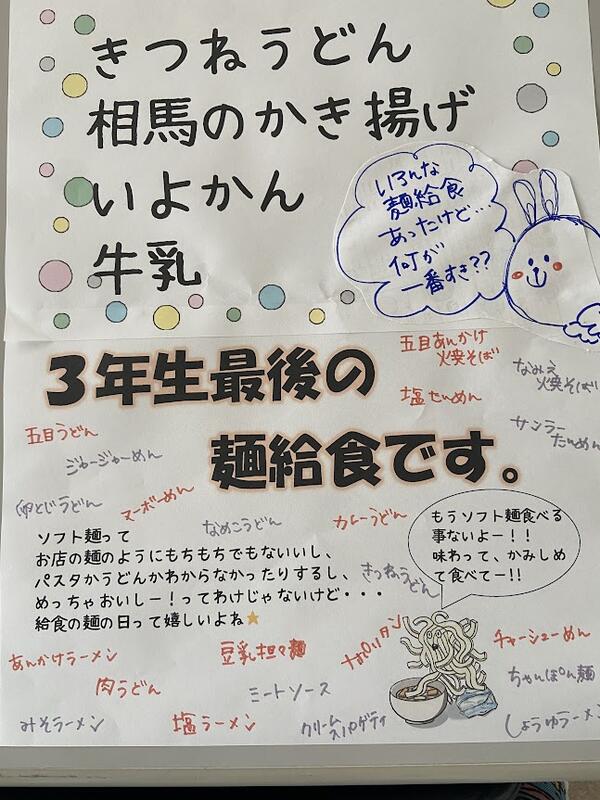 きつねうどん
相馬のかき揚げ
いよかん
牛乳
いろんな
麺給食
あったけど…
何が
一番すき??
3年生最後の
麺給食です。
五目あんかけ
焼そば
なみえ
焼そば
塩たいめん
サンラー
たいめん
五目うどん
ジャージャーめん
卵とじうどん
マーボーめん
なめこうどん
カレーうどん
きつねうどん
もうソフト麺食べる
事ないよー!!
味わって、かみしめ
て食べてー!!
ソフト麺って
お店の麺のようにもちもちでもないいし、
パスタかうどんかわからなかったりするし、
めっちゃおいしー!ってわけじゃないけど・・・
給食の麺の日って嬉しいよね
あんかけラーメン
豆乳担々麺
ナポリタン
チャーシューめん
肉うどん
ミートソース
ちゃんぽん麺
みそラーメン
塩ラーメン
クリーム
スパゲティ
しょうゆラーメン